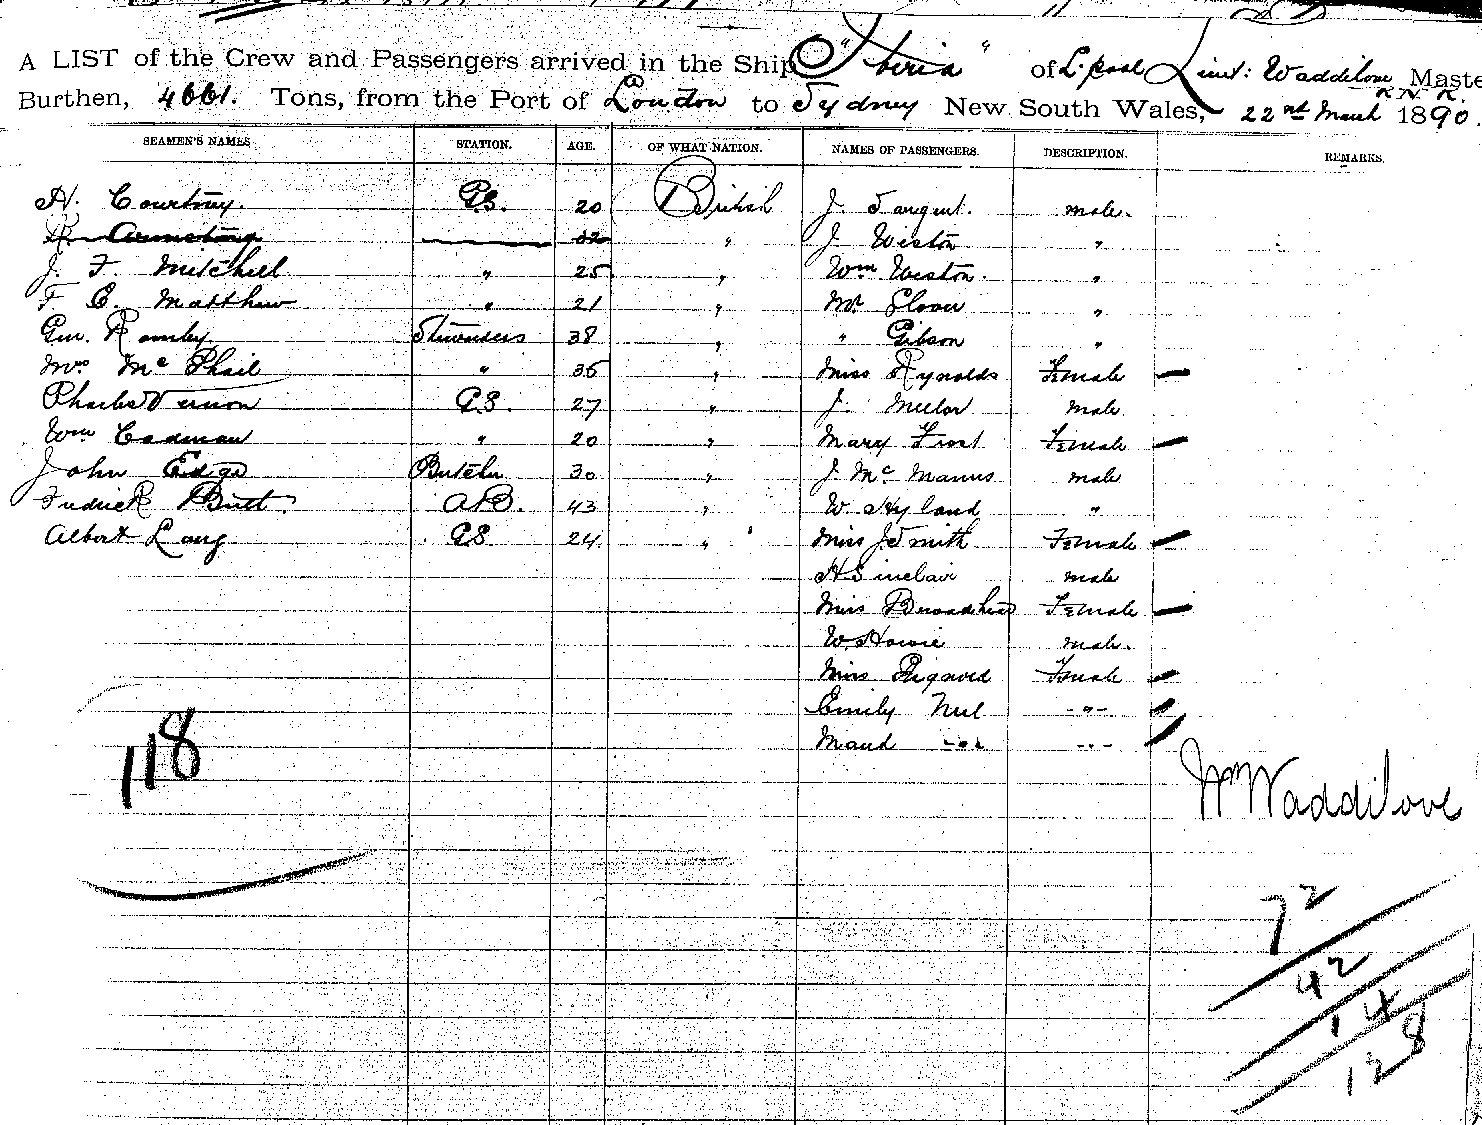 A LIST of the Crew and Passengers arrived in the Ship "Iberia" of L.pool Lieut: Waddilove R.N.R. Maste
Burthen, 4661. Tons, from the Port of London to Sydney New South Wales, 22nd March 1890.
SEAMEN'S NAMES STATION. AGE. OF WHAT NATION. NAMES OF PASSENGERS. DESCRIPTION. REMARKS.
H. Courtnay. G.S. 20 British J. Sargent. male.
Armstrong 32 " J. Weston "
J. F. Mitchell " 25 " Wm Weston. "
F C. Matthew " 21 " Mr. Glover "
Geo. Romley Stewardess 38 " " Gibson "
Mrs McPhail " 35 " Miss Reynolds Female
Charles Vernon G.S. 27 " J. Male
Wm Cadman " 20 " Mary Frost Female
John Edge Butcher 30 " J. McManus male
Fredrick Butt. A.B. 43 " W. Hyland "
Albert Lang G.S 24 " Miss J. Smith Female
H Sinclair male
Miss Broadhead Female
W. Howie male.
Miss Female
Emily Neil -"-
Maud -"- -"-
118
Waddilove
72
42
14
128